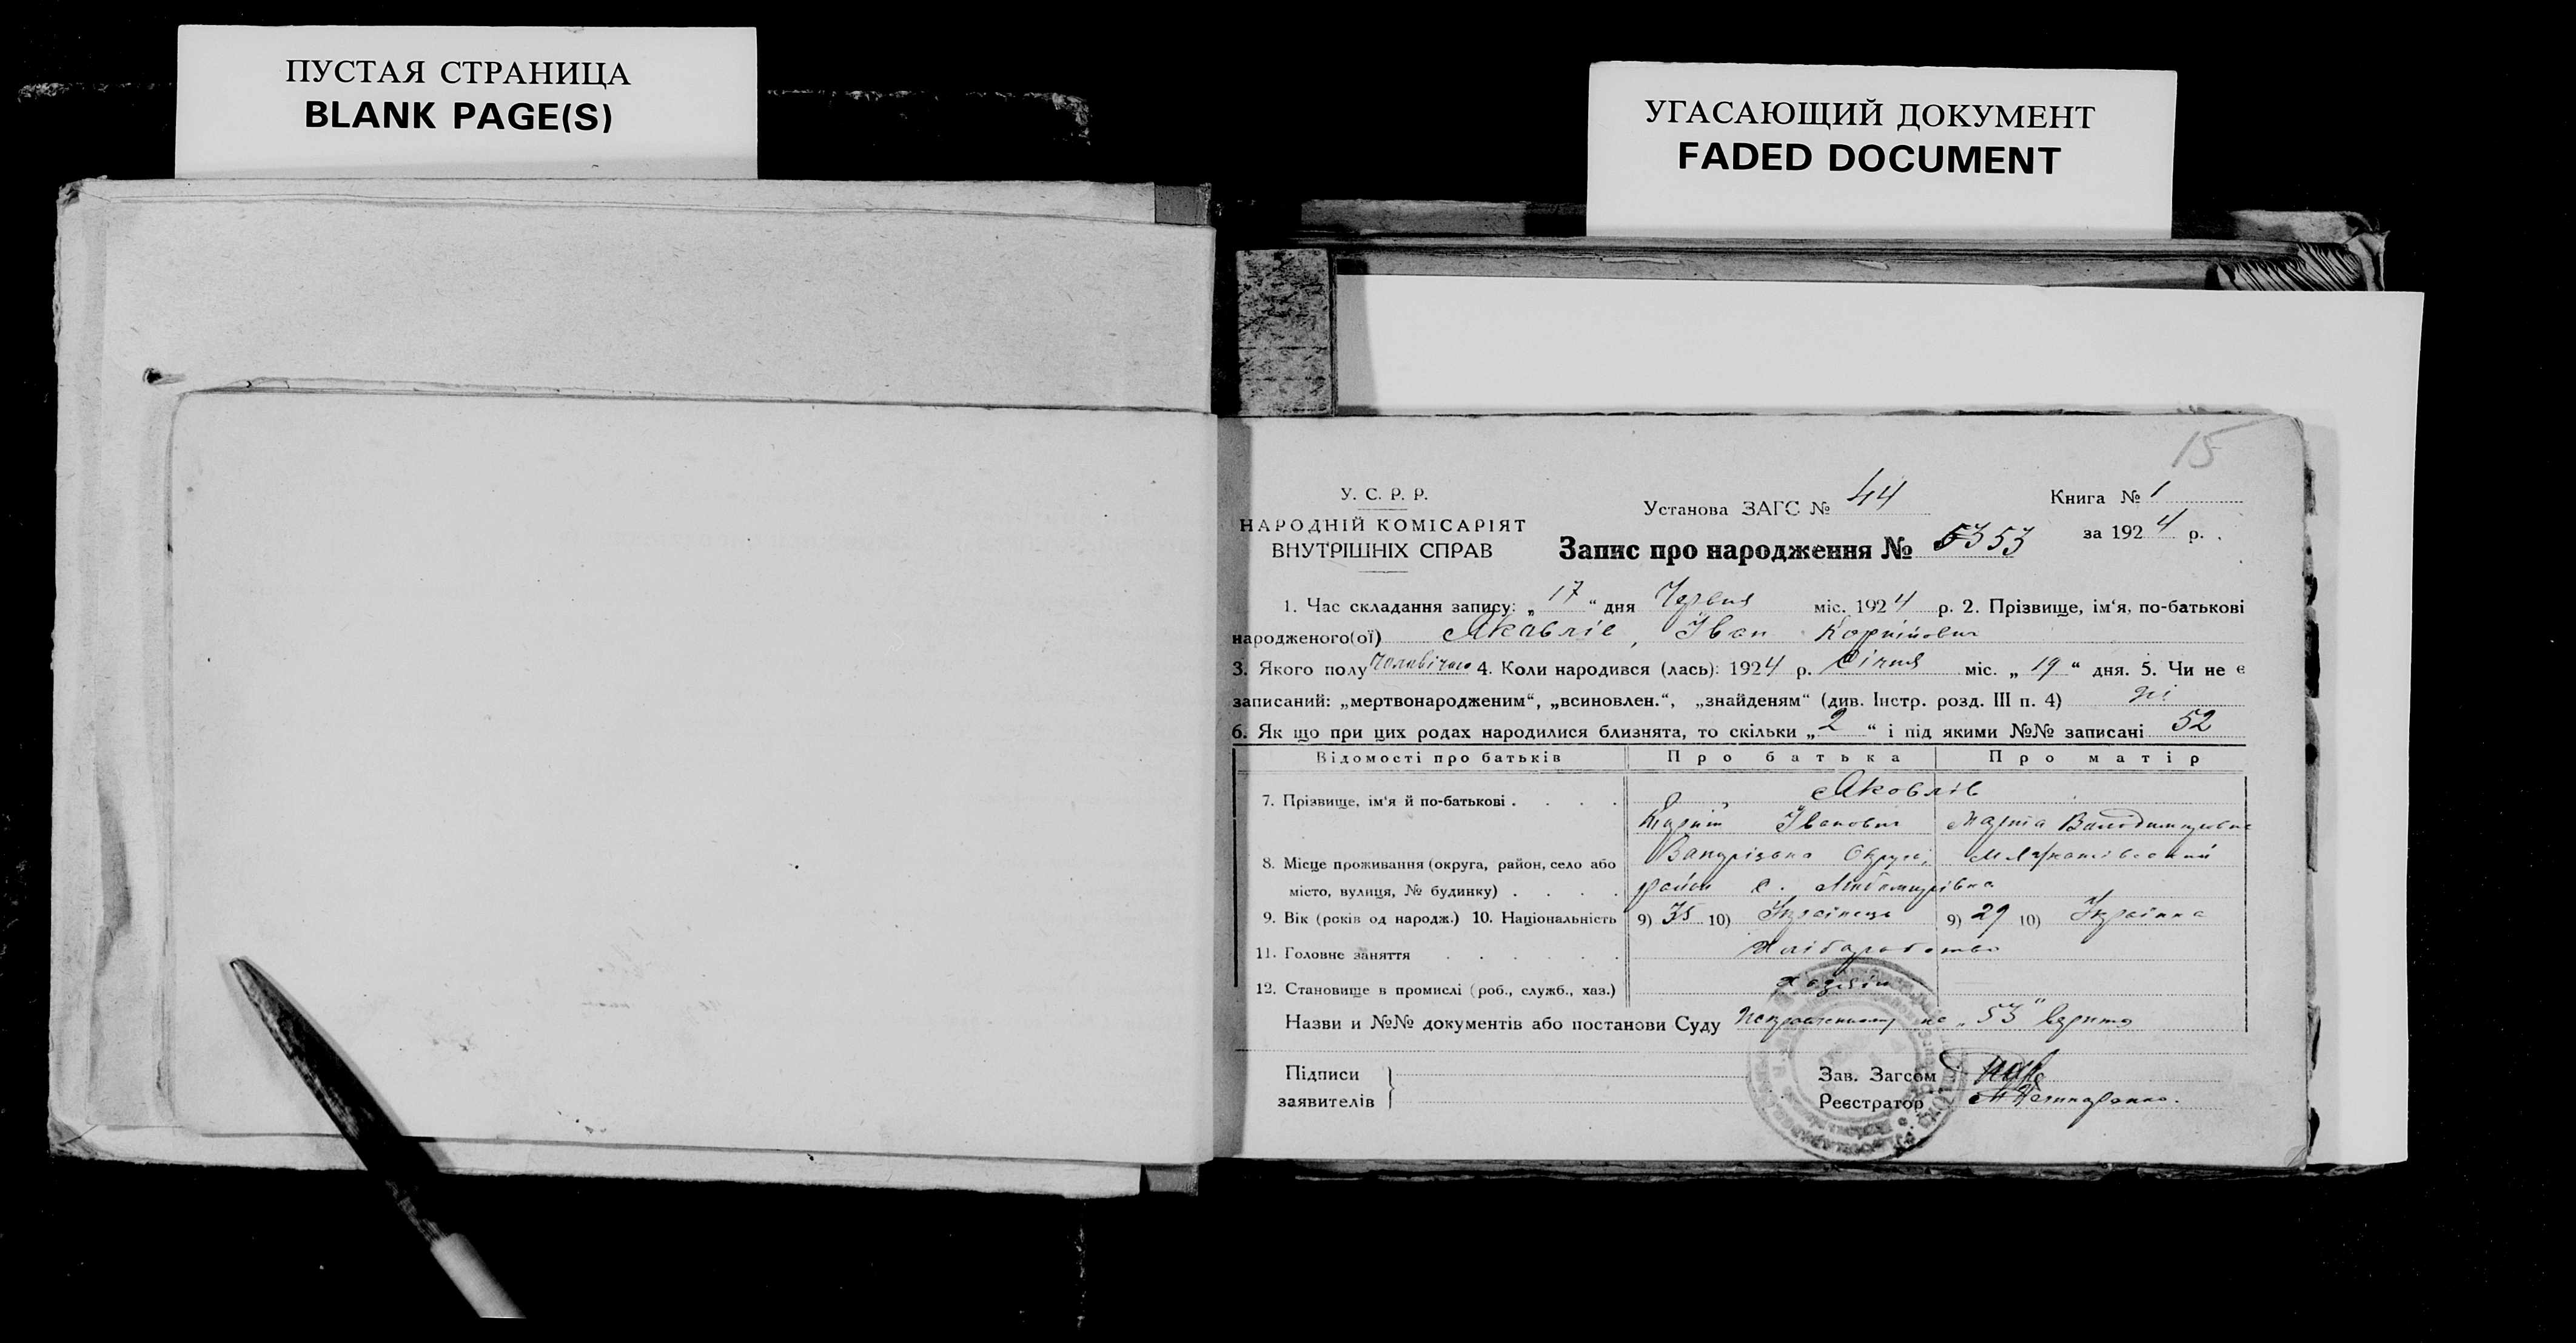 ПУСТАЯ СТРАНИЦА
BLANK PAGE(S)
УГАСАЮЩИЙ ДОКУМЕНТ
FADED DOCUMENT
15
У. С. Р. Р.
НАРОДНІЙ КОМІСАРІЯТ
ВНУТРІШНІХ СПРАВ
Установа ЗАГС № 44
Книга № 1
за 1924 р.
Запис про народження № 5353
1. Час складання запису: „17“ дня Червня міс. 1924 р. 2. Прізвище, ім‘я, по-батькові
народженого(ої) Яковлів, Іван Корнійович
3. Якого полу чоловічого 4. Коли народився (лась): 1924 р. Січня міс. „19“ дня. 5. Чи не є
записаний: „мертвонародженим“, „всиновлен.“, „знайденям“ (див. Інстр. розд. III п. 4) ні
6. Як що при цих родах народилися близнята, то скільки „2“ і під якими №№ записані 52
Відомості про батьків Про батька Про матір
7. Прізвище, ім‘я й по-батькові . . . . Яковлів
Корній Іванович Марія Володимировна
8. Місце проживання (округа, район, село або Запорізька Округа,
місто, вулиця, № будинку) . . . . район с. Любимирівка
9. Вік (років од народж.) 10. Національність 9) 35 10) Українець 9) 29 10) Українка
11. Головне заняття . . . . . . Хліборобство
12. Становище в промислі (роб., служб., хаз.) Хазяїн
Назви и №№ документів або постанови Суду Исправленному на „53“ верить
Підписи
заявителів
Зав. Загсом
Реєстратор